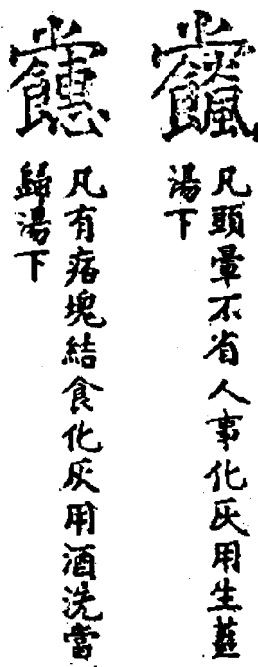 凡頭暈不省人事化灰用生薑
湯下
凡有痞塊結食化灰用酒洗當
歸湯下